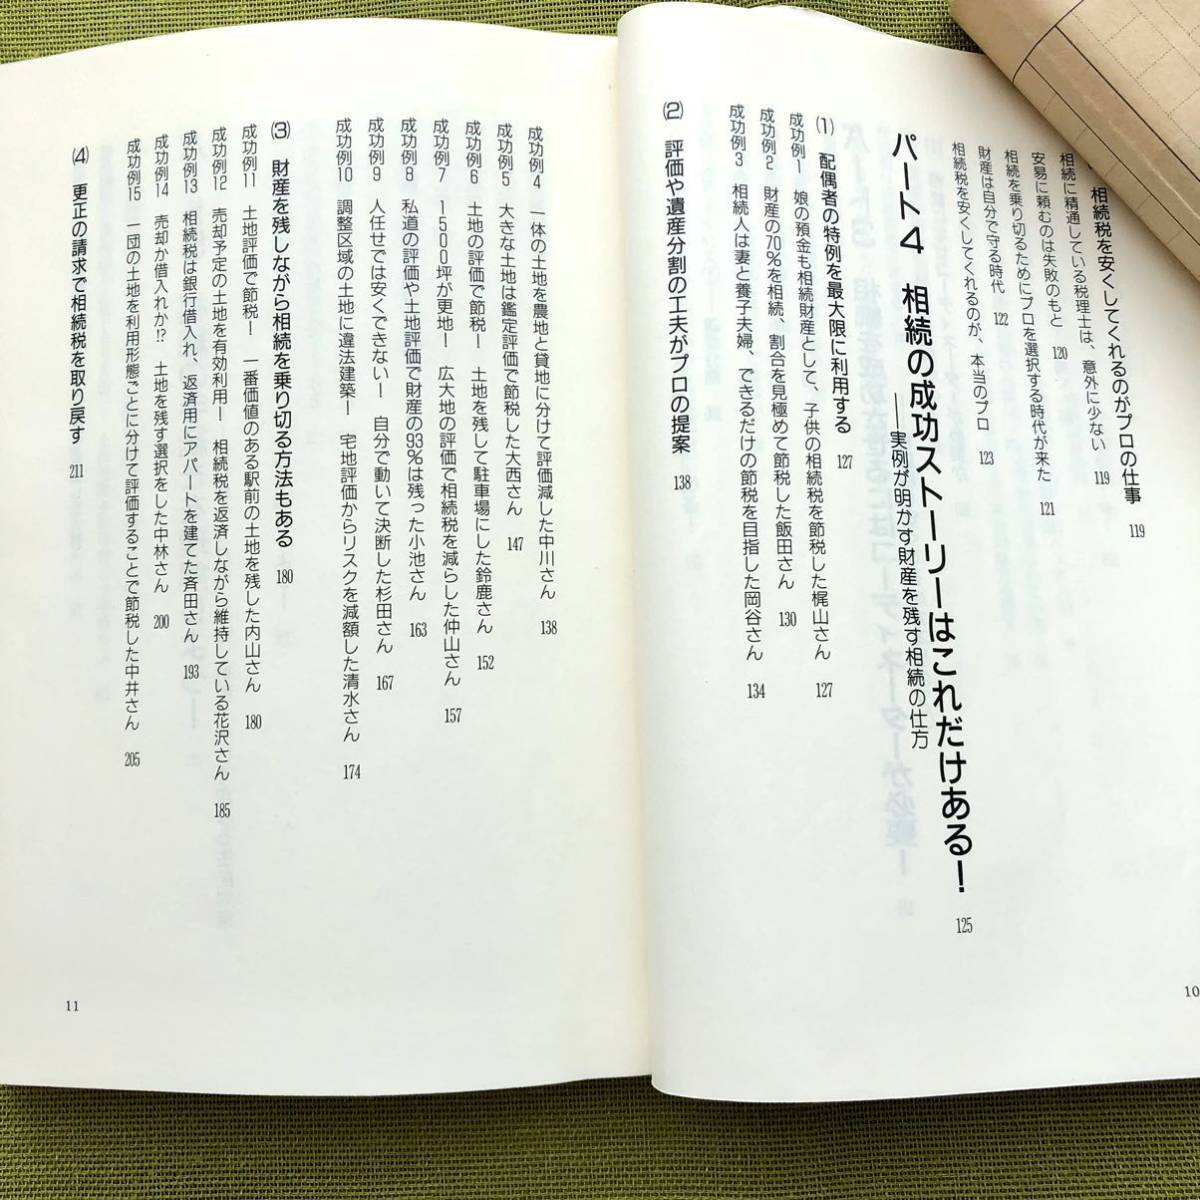 相続税を安くしてくれるのがプロの仕事 119
相続に精通している税理士は、意外に少ない 119
安易に頼むのは失敗のもと 120
相続を乗り切るためにプロを選択する時代が来た 121
財産は自分で守る時代 122
相続税を安くしてくれるのが、本当のプロ 123
パート4 相続の成功ストーリーはこれだけある! 125
――実例が明かす財産を残す相続の仕方
(1) 配偶者の特例を最大限に利用する 127
成功例1 娘の預金も相続財産として、子供の相続税を節税した梶山さん 127
成功例2 財産の70%を相続、割合を見極めて節税した飯田さん 130
成功例3 相続人は妻と養子夫婦、できるだけの節税を目指した岡谷さん 134
(2) 評価や遺産分割の工夫がプロの提案 138
10
成功例4 一体の土地を農地と貸地に分けて評価減した中川さん 138
成功例5 大きな土地は鑑定評価で節税した大西さん 147
成功例6 土地の評価で節税! 土地を残して駐車場にした鈴鹿さん 152
成功例7 1500坪が更地! 広大地の評価で相続税を減らした仲山さん 157
成功例8 私道の評価や土地評価で財産の93%は残った小池さん 163
成功例9 人任せでは安くできない! 自分で動いて決断した杉田さん 167
成功例10 調整区域の土地に違法建築! 宅地評価からリスクを減額した清水さん 174
(3) 財産を残しながら相続を乗り切る方法もある 180
成功例11 土地評価で節税! 一番価値のある駅前の土地を残した内山さん 180
成功例12 売却予定の土地を有効利用! 相続税を返済しながら維持している花沢さん 185
成功例13 相続税は銀行借入れ、返済用にアパートを建てた斉田さん 193
成功例14 売却か借入れか!? 土地を残す選択をした中林さん 200
成功例15 一団の土地を利用形態ごとに分けて評価することで節税した中井さん 205
(4) 更正の請求で相続税を取り戻す 211
11